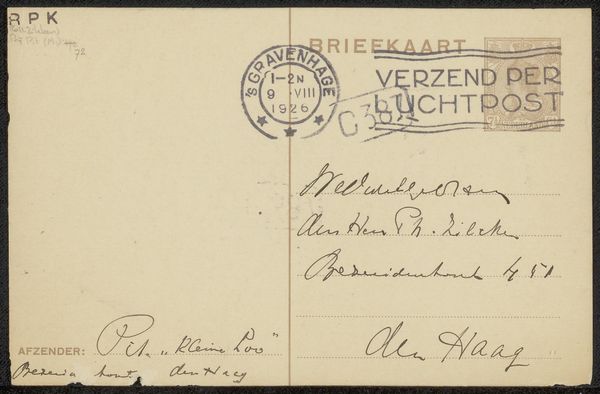 RPK
72
BRIEFKAART
'S GRAVENHAGE
1-2N
9 VIII
1926
VERZEND PER
LUCHTPOST
C38
7½
WelEdelgeboren
den Heer Ph. Zilcken
Bezuidenhout 451
den Haag
AFZENDER: Pit „Kleine Loo"
Bezuidenhout den Haag